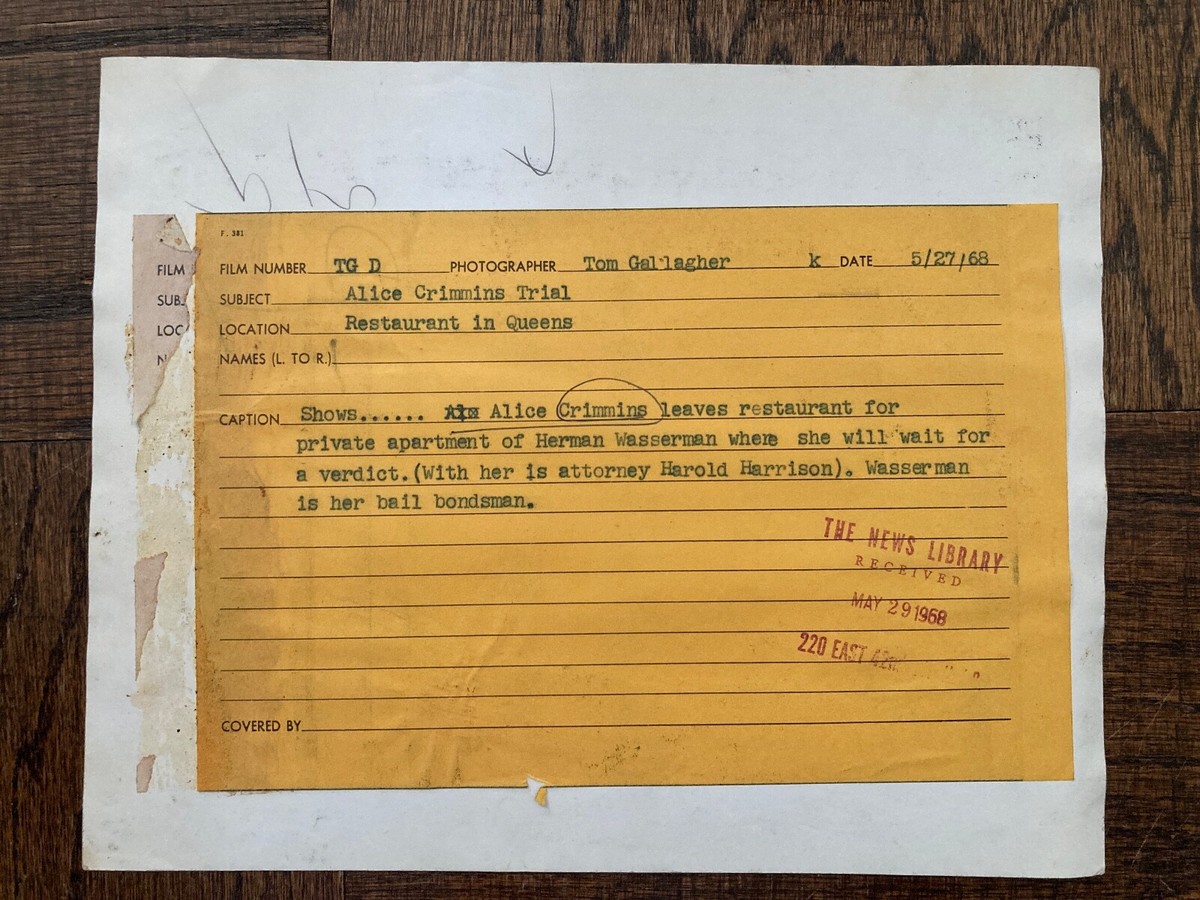 F. 381
FILM FILM NUMBER TG D PHOTOGRAPHER Tom Gallagher k DATE 5/27/68
SUB. SUBJECT Alice Crimmins Trial
LOC LOCATION Restaurant in Queens
N NAMES (L. TO R.)
CAPTION Shows...... Alice Crimmins leaves restaurant for
private apartment of Herman Wasserman where she will wait for
a verdict.(With her is attorney Harold Harrison). Wasserman
is her bail bondsman.
THE NEWS LIBRARY
RECEIVED
MAY 29 1968
220 EAST
COVERED BY